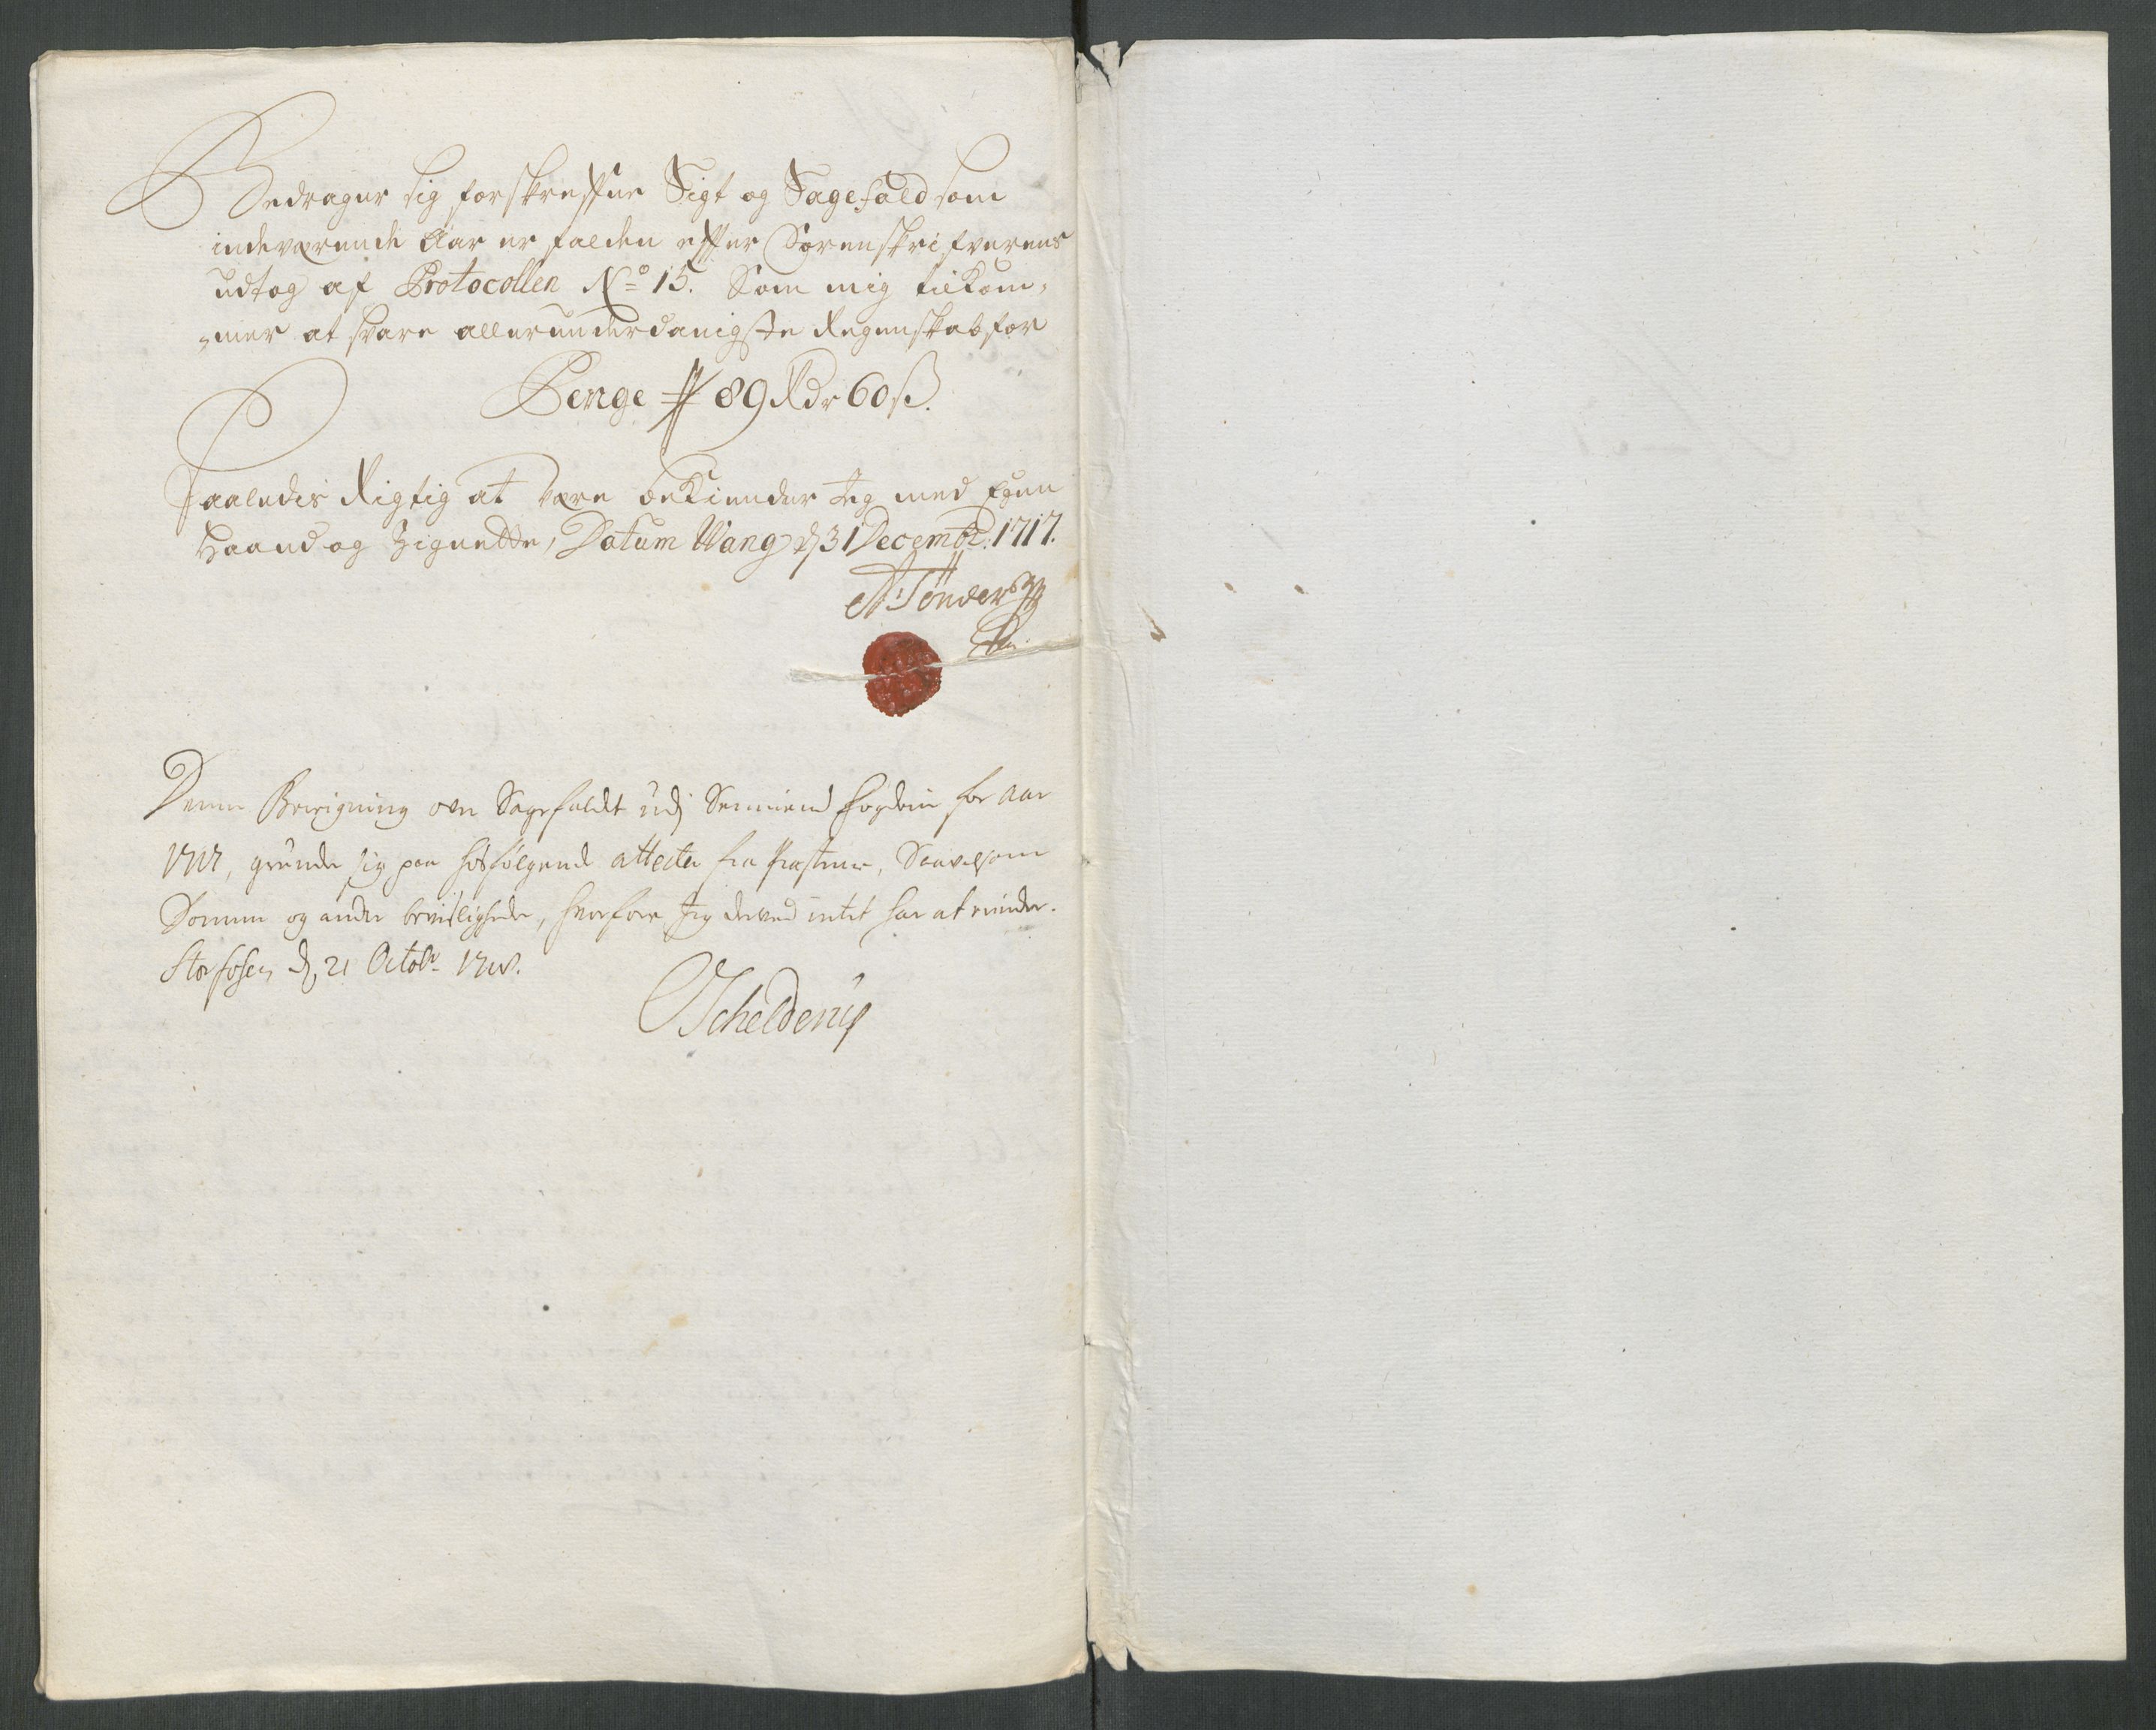 Bedrager sig forskreffne Sigt og Sagefald som
indeværende Aar er falden effter Sorenskrifverens
udtog af Protocollen No 15. Som mig tilkom-
-mer at svare allerunderdanigste Regenskab for
Penge 89 Rdr 60 ß.
Saaledis Rigtig at være bekiender Jeg med Egen
Haand og Zignette, Datum Wang d 31 Decembr: 1717.
A: Tønder
Denne Berigning over Sagefaldt udj Senniens fogderie for Aar
1717, grunder sig paa hosfølgende attester fra Præsterne, Saavelsom
Domme og andre bevisligheder, hvorfore Jeg derved intet har at erindre.
Storfosen d. 21 Octobr 1718.
Schelderup